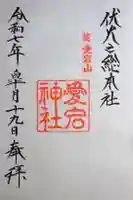 伏火之総本社
愛宕山
愛宕
神社
令和七年皐月十九日奉拝